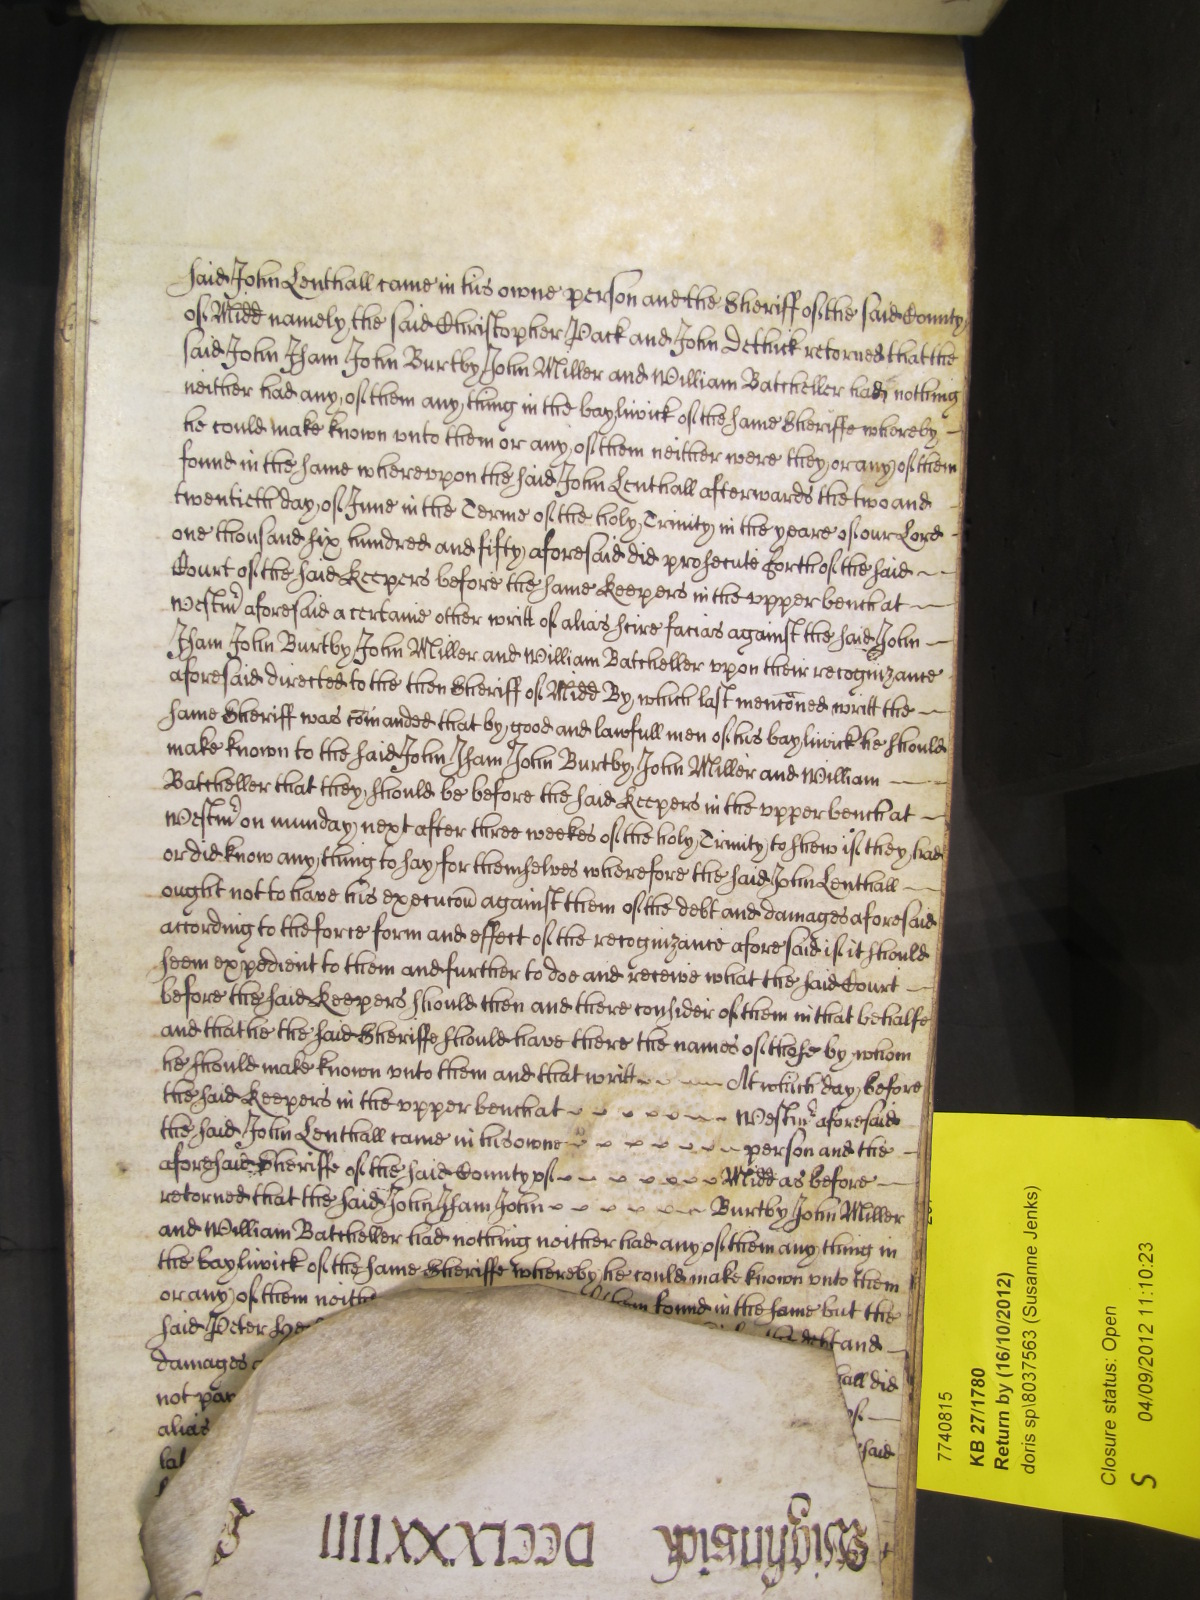 said John Lenthall came in his owne person and the Sheriff of the said County
of Midd namely the said Christopher Pack and John Dethick retorned that the
said John Isham John Burtby John Miller and William Batcheller had nothing
neither had any of them any thing in the bayliwick of the same Sheriffe whereby
he could make known vnto them or any of them neither were they or any of them
found in the same wherevpon the said John Lenthall afterwards the two and
twentieth day of June in the Terme of the holy Trinity in the yeare of our Lord
one thousand six hundred and fifty aforesaid did prosecute forth of the said
Court of the said Keepers before the same Keepers in the vpper bench at
Westmr aforesaid a certaine other writt of alias scire facias against the said John
Isham John Burtby John Miller and William Batcheller vpon their recognizance
aforesaid directed to the then Sheriff of Midd By which last mencōned writt the
same Sheriff was cōmanded that by good and lawfull men of his bayliwick he should
make known to the said John Isham John Burtby John Miller and William
Batcheller that they should be before the said Keepers in the vpper bench at
Westmr on munday next after three weekes of the holy Trinity to shew if they had
or did know any thing to say for themselves wherefore the said John Lenthall
ought not to have his execucōn against them of the debt and damages aforesaid
according to the force form and effect of the recognizance aforesaid if it should
seem expedient to them and further to doe and receive what the said Court
before the said Keepers should then and there consider of them in that behalfe
and that he the said Sheriffe should have there the names of those by whom
he should make known vnto them and that writt At which day before
the said Keepers in the vpper bench at Westmr aforesaid
the said John Lenthall came in his owne person and the
aforesaid Sheriffe of the said County of Midd as before
retorned that the said John Isham John Burtby John Miller
and William Batcheller had nothing neither had any of them any thing in
the bayliwick of the same Sheriffe whereby he could make known vnto them
or any of them neithe them found in the same but the
said Peter debt and
damages
not par all did
alias of
said
DCCLXXIIII
7740815
KB 27/1780
Return by (16/10/2012)
doris sp\8037563 (Susanne Jenks)
Closure status: Open
S 04/09/2012 11:10:23